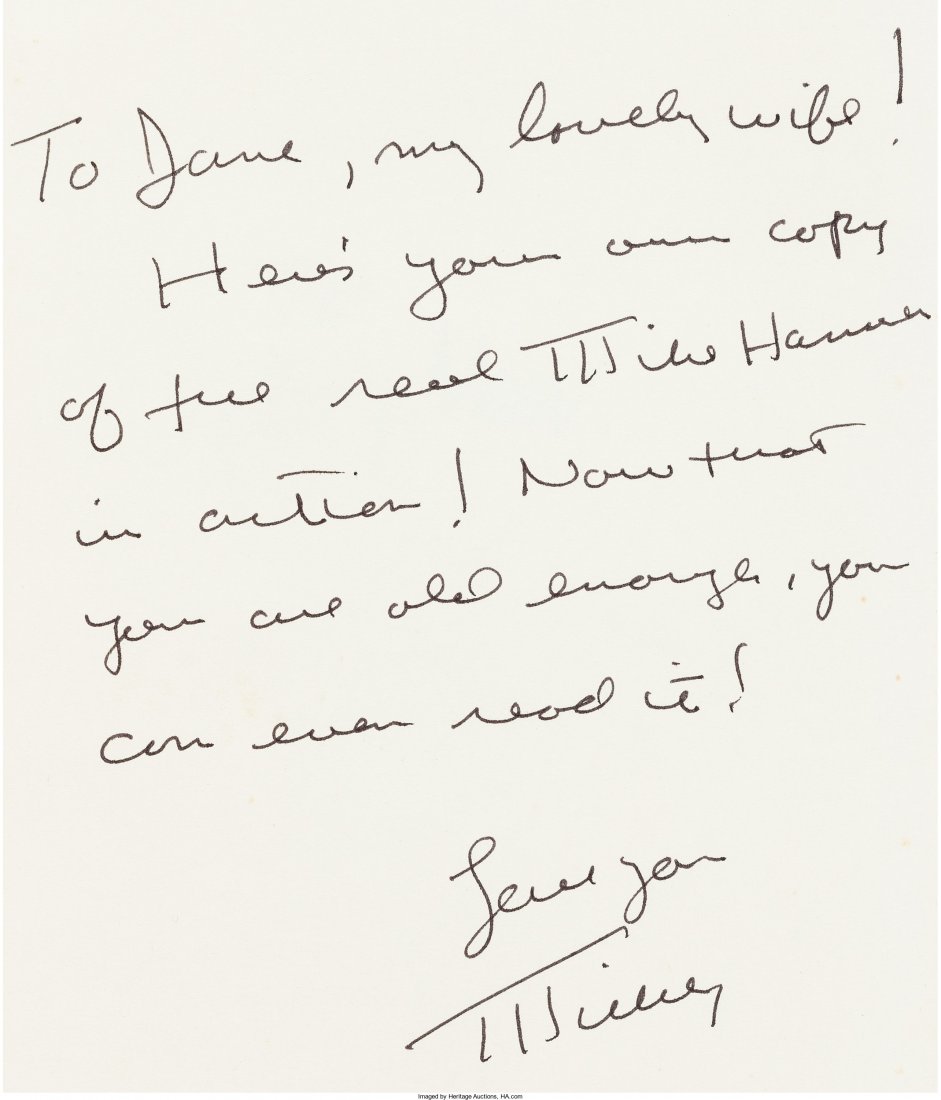 To Jane, my lovely wife!
Here's your own copy
of the real Mike Hammer
in action! Now that
you are old enough, you
can even read it!
Love you
Mickey
Imaged by Heritage Auctions, HA.com